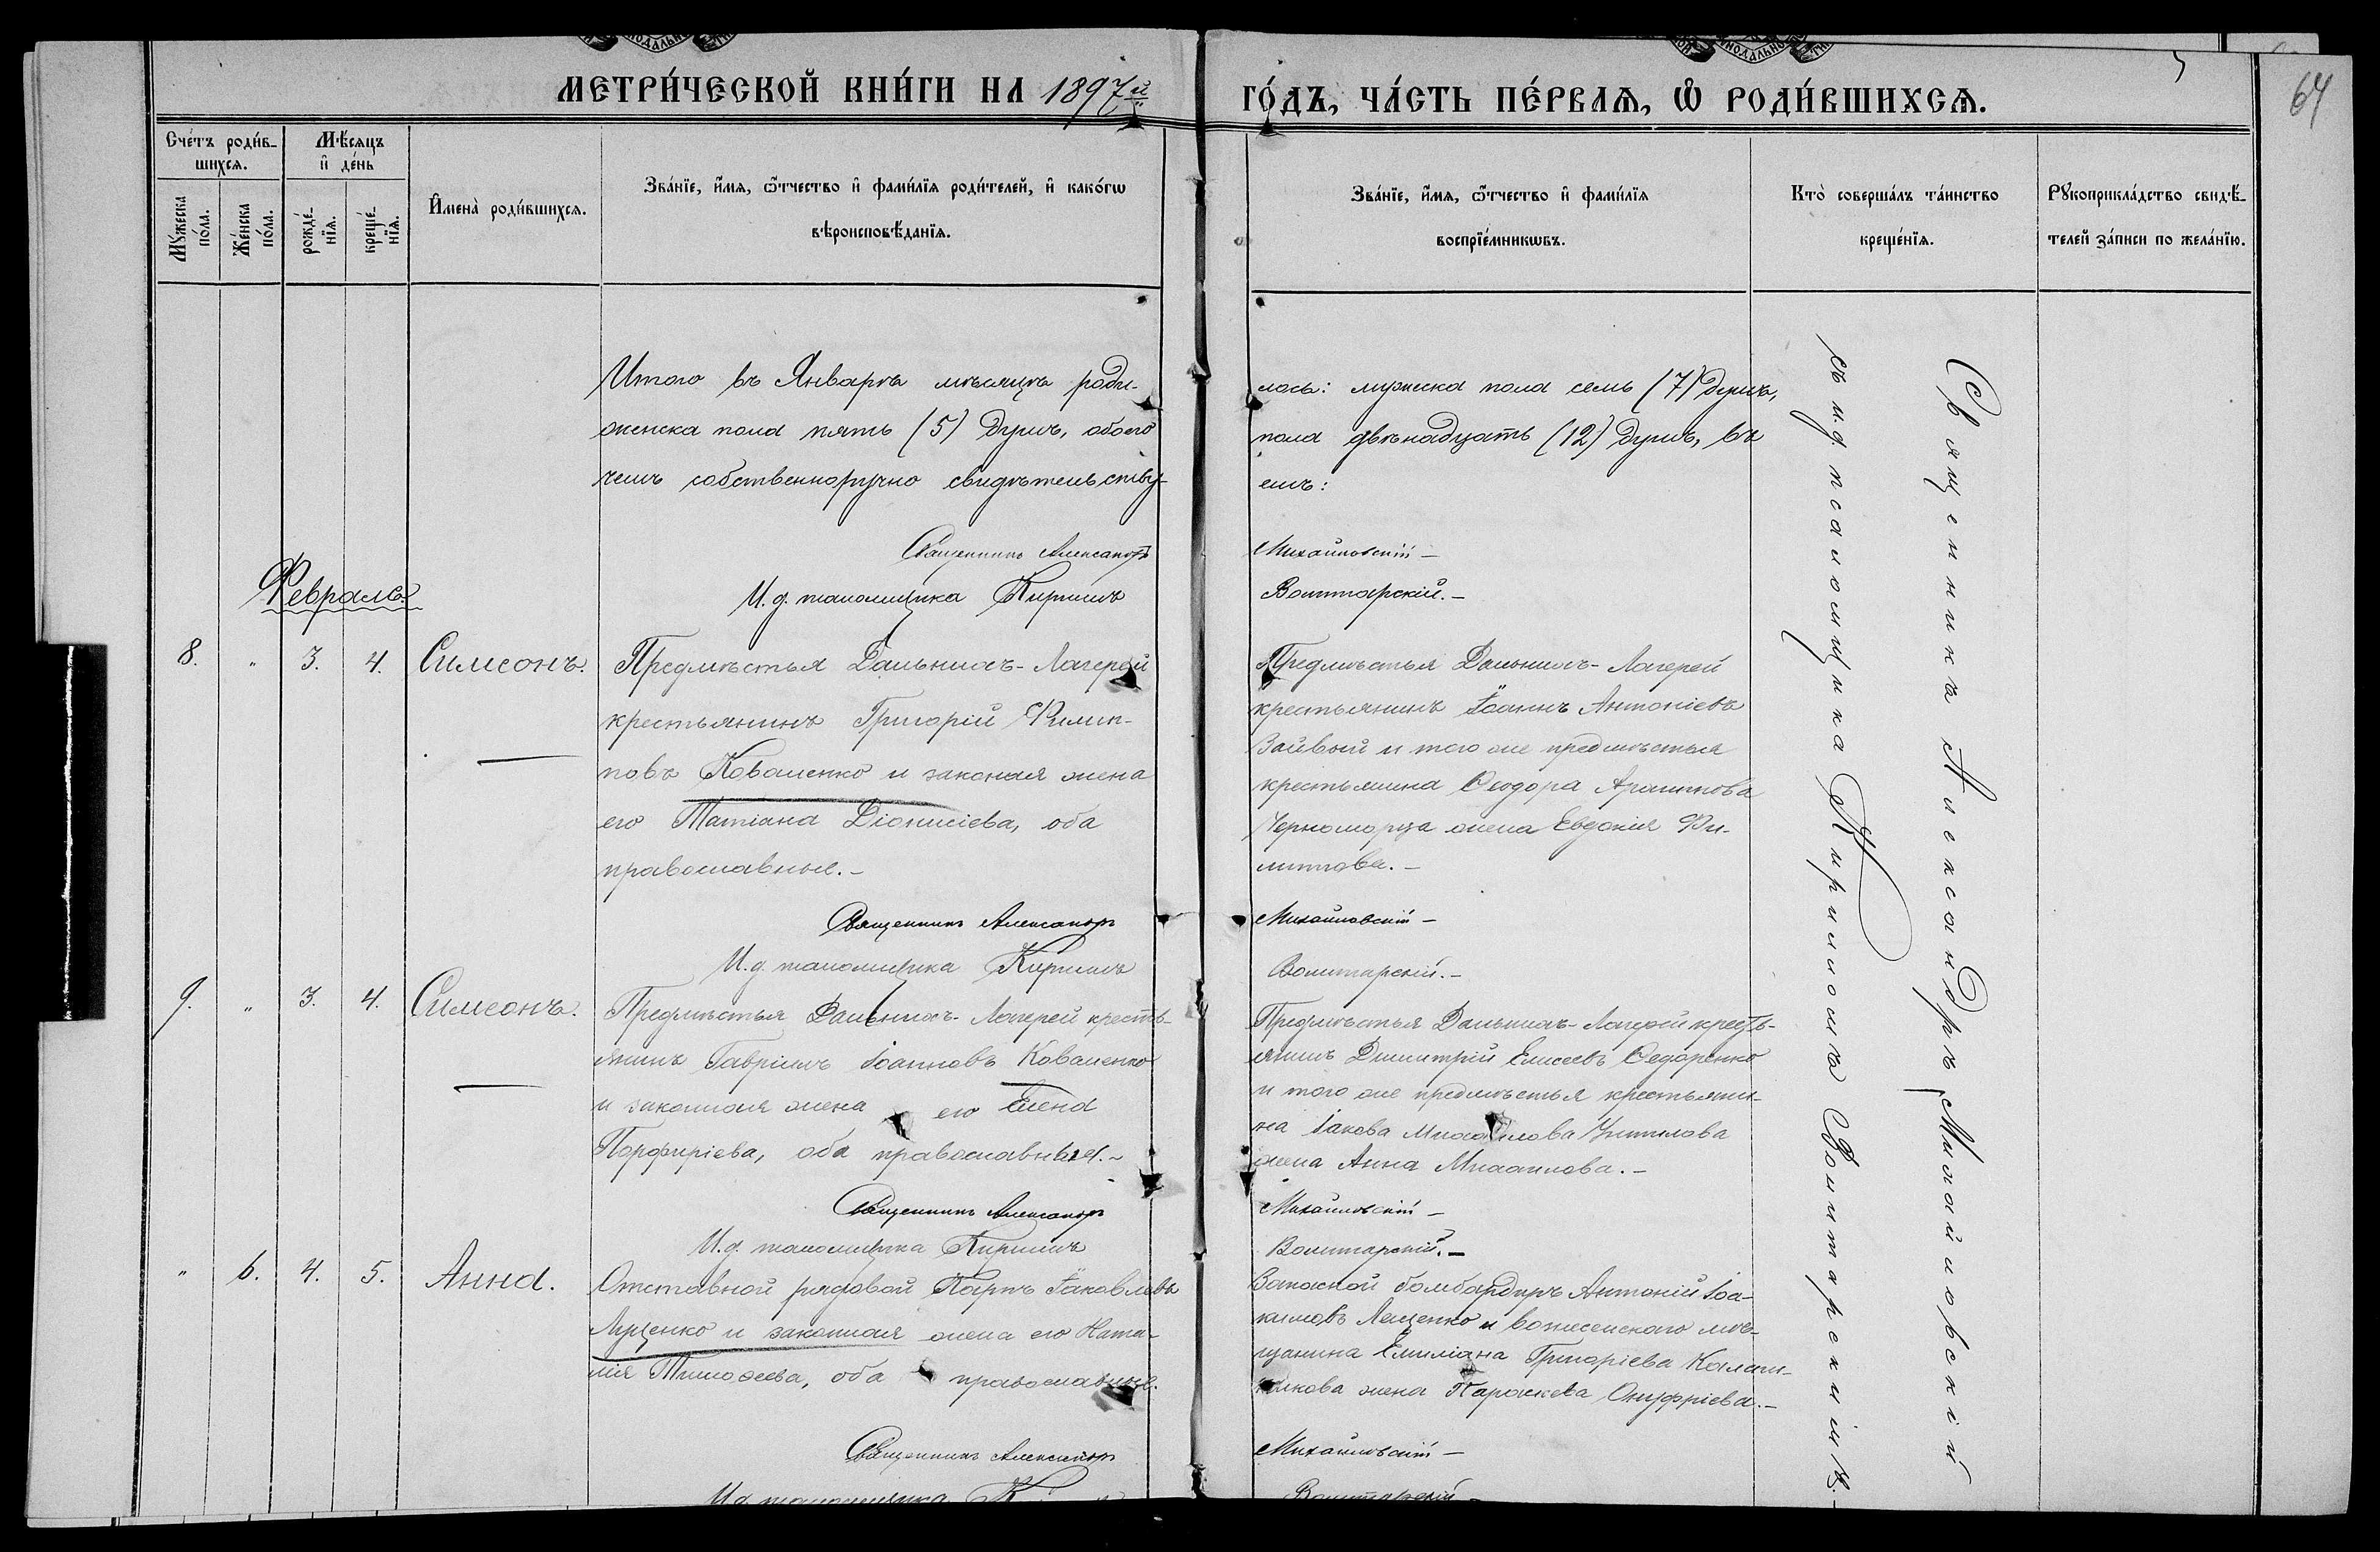 МЕТРИ́ЧЕСКОЙ КНИ́ГИ НА 1897й
ГО́ДЪ, ЧА́СТЬ ПЕ́РВАѦ, Ѡ҆ РОДИ́ВШИХСѦ.
64
Сче́тъ роди́в-
шихсѧ.
Мѣ́сяцъ
и҆ де́нь
Мꙋ́жеска
по́ла.
Же́нска
по́ла.
рожде́-
нїѧ.
креще́-
нїѧ.
И҆мена̀ роди́вшихсѧ.
Зва́нїе, и҆́мѧ, ѻ҆́тчество и҆ фами́лїѧ роди́телей, и҆ како́гѡ
вѣроисповѣ́данїѧ.
Зва́нїе, и҆́мѧ, ѻ҆́тчество и҆ фами́лїѧ
воспрїе́мникѡвъ.
Кто̀ соверша́лъ та́инство
креще́нїѧ.
Рꙋкоприкла́дство свидѣ́-
телей за́писи по жела́нїю.
Итого въ Январѣ мѣсяцѣ роди-
лось: мужеска пола семь (7) душъ,
женска пола пять (5) душъ, обоего
пола двѣнадцать (12) душъ, въ
чемъ собственноручно свидѣтельству-
емъ:
Священникъ Александръ
Михайловскій –
И. д. псаломщика Кириллъ
Волитарскій. –
Февраль
8. " 3. 4. Симеонъ.
Предмѣстья Дальнихъ-Лагерей
крестьянинъ Григорій Филип-
повъ Коваленко и законая жена
его Татіана Діонисіева, оба
православные. –
Предмѣстья Дальнихъ-Лагерей
крестьянинъ Іоаннъ Антоніевъ
Зайвый и того же предмѣстья
крестьянина Ѳеодора
Черноморца жена Евдокія Фи-
липпова. –
Священникъ Александръ
Михайловскій –
И. д. псаломщика Кириллъ
Волитарскій. –
9. " 3. 4. Симеонъ.
Предмѣстья Дальнихъ-Лагерей кресть-
янинъ Гавріилъ Іоанновъ Коваленко
и законная жена его Елена
Порфиріева, оба православные. –
Предмѣстья Дальнихъ-Лагерей кресть-
янинъ Димитрій Елисеевъ Ѳедоренко
и того же предмѣстья крестьяни-
на Іакова Михаилова
жена Анна Михаилова. –
Священникъ Александръ
Михайловскій –
И. д. псаломщика Кириллъ
Волитарскій. –
" 6. 4. 5. Анна.
Отставной рядовой Карпъ Іаковлевъ
Луценко и законная жена его Ната-
лія Тимоѳеева, оба православные.
Запасной бомбардиръ Антоній Іоа-
кимовъ Лещенко и вознесенскаго мѣ-
щанина Емиліана Григоріева Калаш-
никова жена Параскева Онуфріева. –
Священникъ Александръ
Михайловскій –
И. д. псаломщика
Волитарскій –
Священникъ Александръ Михайловскій
съ и. д. псаломщика Кирилломъ Волитарскимъ. –